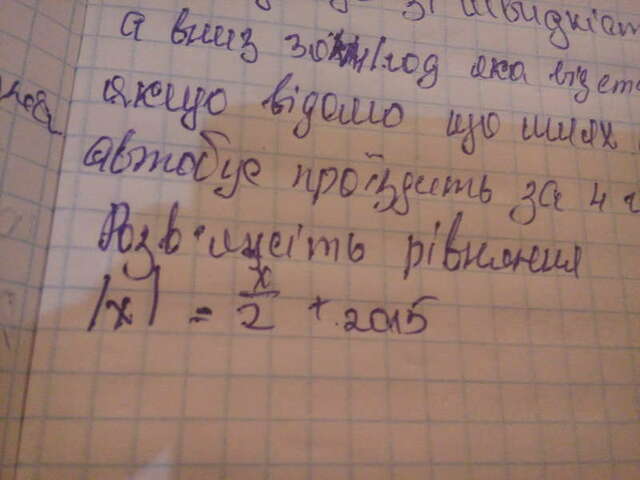 зі швидкіст
а вниз 30км/год яка відст
якщо відомо що шлях
автобус проїздить за 4 г
Розв'яжіть рівняння
|x| = x/2 + 2015